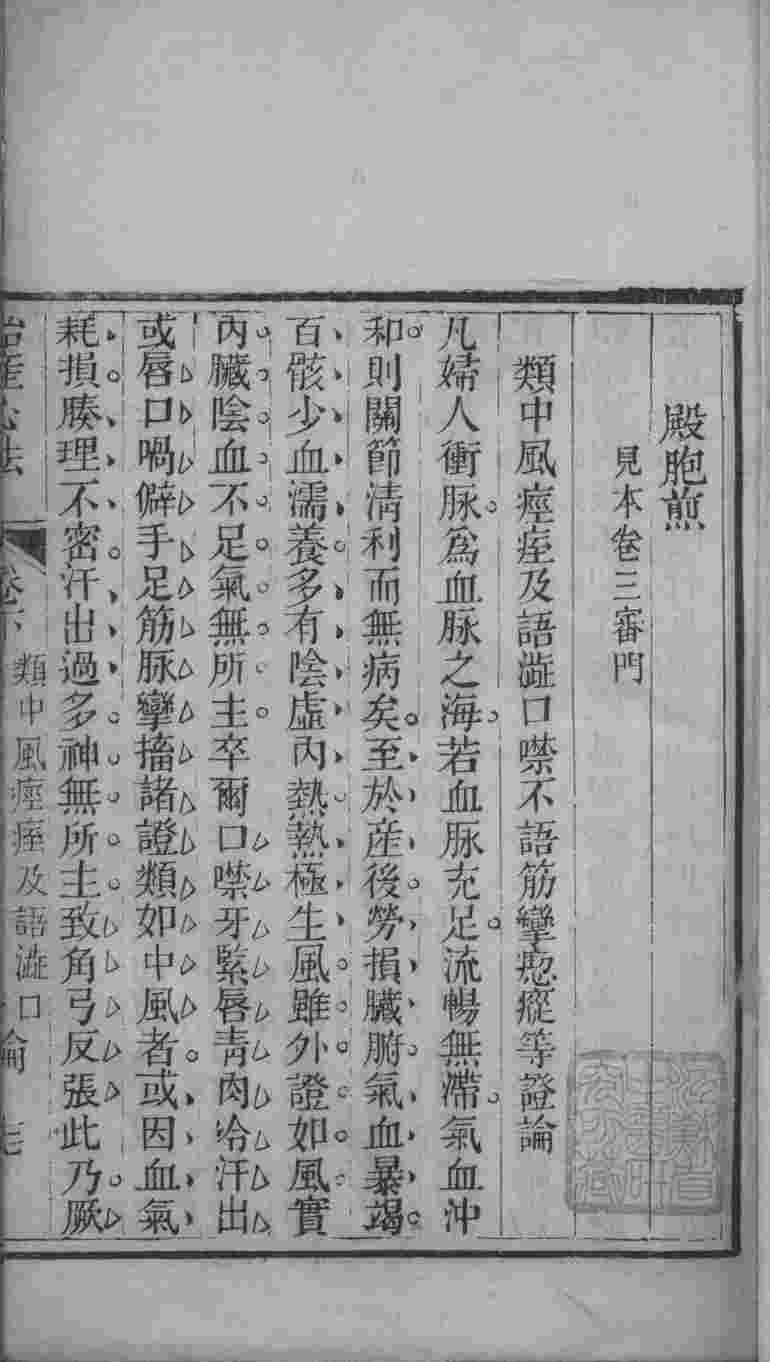 殿胞煎
見本卷三審門
類中風痙痓及語澁口噤不語筋攣瘛瘲等證論
凡婦人衝脉爲血脉之海若血脉充足流暢無滯氣血沖
和則關節淸利而無病矣至於産後勞損臟腑氣血暴竭
百骸少血濡養多有陰虛內熱熱極生風雖外證如風實
內臟陰血不足氣無所主卒爾口噤牙緊唇靑肉冷汗出
或唇口喎僻手足筋脉攣搐諸證類如中風者或因血氣
耗損腠理不密汗出過多神無所主致角弓反張此乃厥
胎産心法 卷下 類中風痙痓及語澁口 論